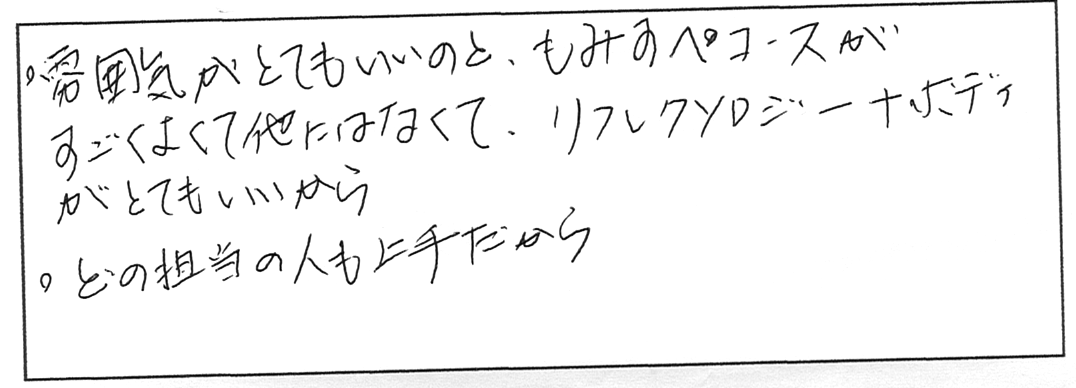 。雰囲気がとてもいいのと、もみすペコースが
すごくよくて他にはなくて、リフレクソロジー+ボディ
がとてもいいから
。どの担当の人も上手だから